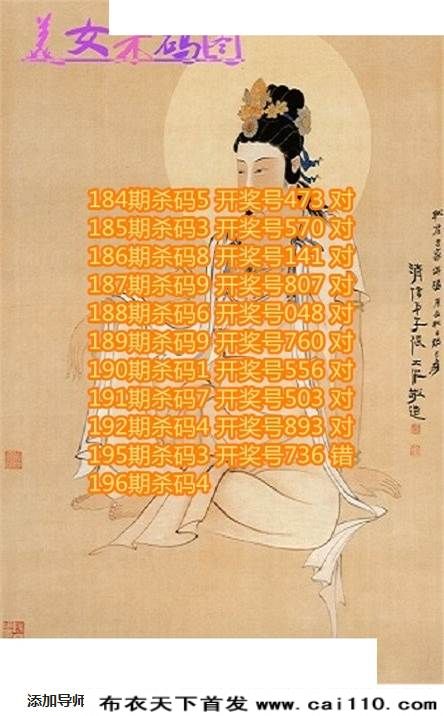 美女杀码图
184期杀码5 开奖号473 对
185期杀码3 开奖号570 对
186期杀码8 开奖号141 对
187期杀码9 开奖号807 对
188期杀码6 开奖号048 对
189期杀码9 开奖号760 对
190期杀码1 开奖号556 对
191期杀码7 开奖号503 对
192期杀码4 开奖号893 对
195期杀码3 开奖号736 错
196期杀码4
添加导师 布衣天下首发 www.cai110.com